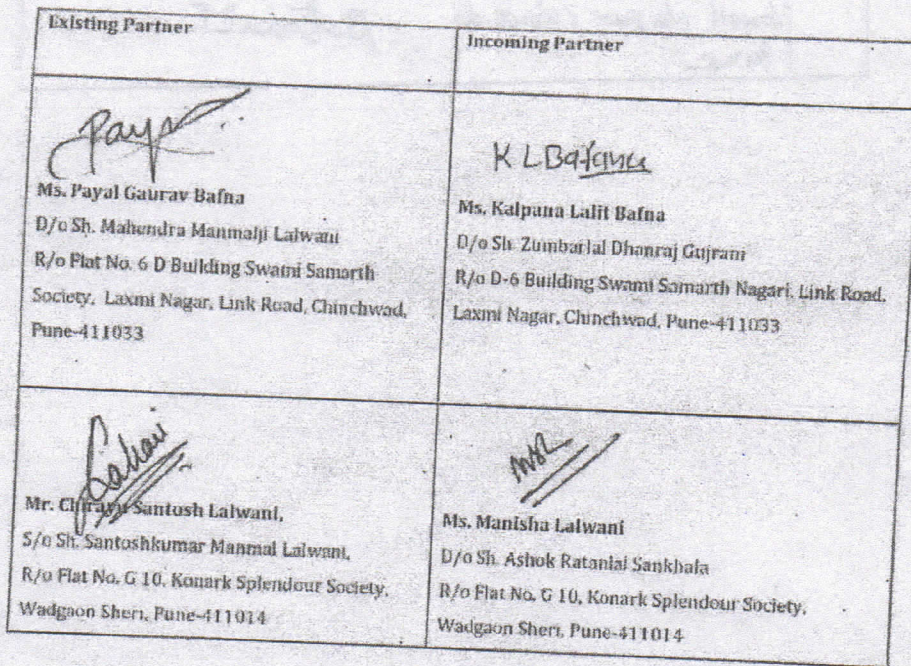 Existing Partner
Incoming Partner
Payal
Ms. Payal Gaurav Bafna
D/o Sh. Mahendra Manmalji Lalwani
R/o Flat No. 6 D Building Swami Samarth
Society, Laxmi Nagar, Link Road, Chinchwad,
Pune-411033
K L Bafana
Ms. Kalpana Lalit Bafna
D/o Sh. Zumbarlal Dhanraj Gujrani
R/o D-6 Building Swami Samarth Nagari, Link Road,
Laxmi Nagar, Chinchwad, Pune-411033
Mr. Chirayu Santosh Lalwani,
S/o Sh. Santoshkumar Manmal Lalwani,
R/o Flat No. G 10, Konark Splendour Society,
Wadgaon Sheri, Pune-411014
Ms. Manisha Lalwani
D/o Sh. Ashok Ratanlal Sankhala
R/o Flat No. G 10, Konark Splendour Society,
Wadgaon Sheri, Pune-411014